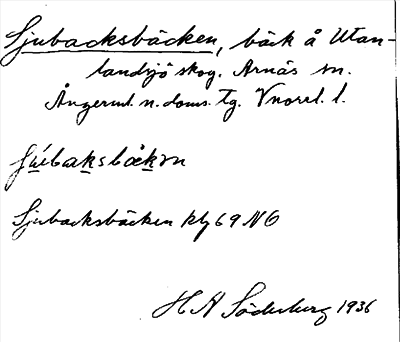 Sjubacksbäcken, bäck å Utan-
landsjö skog. Arnäs sn.
Ångerml. n. doms. tg. Vnorrl. l.
Sjubacksbäcken kbl 69 NO
H A Söderberg 1936